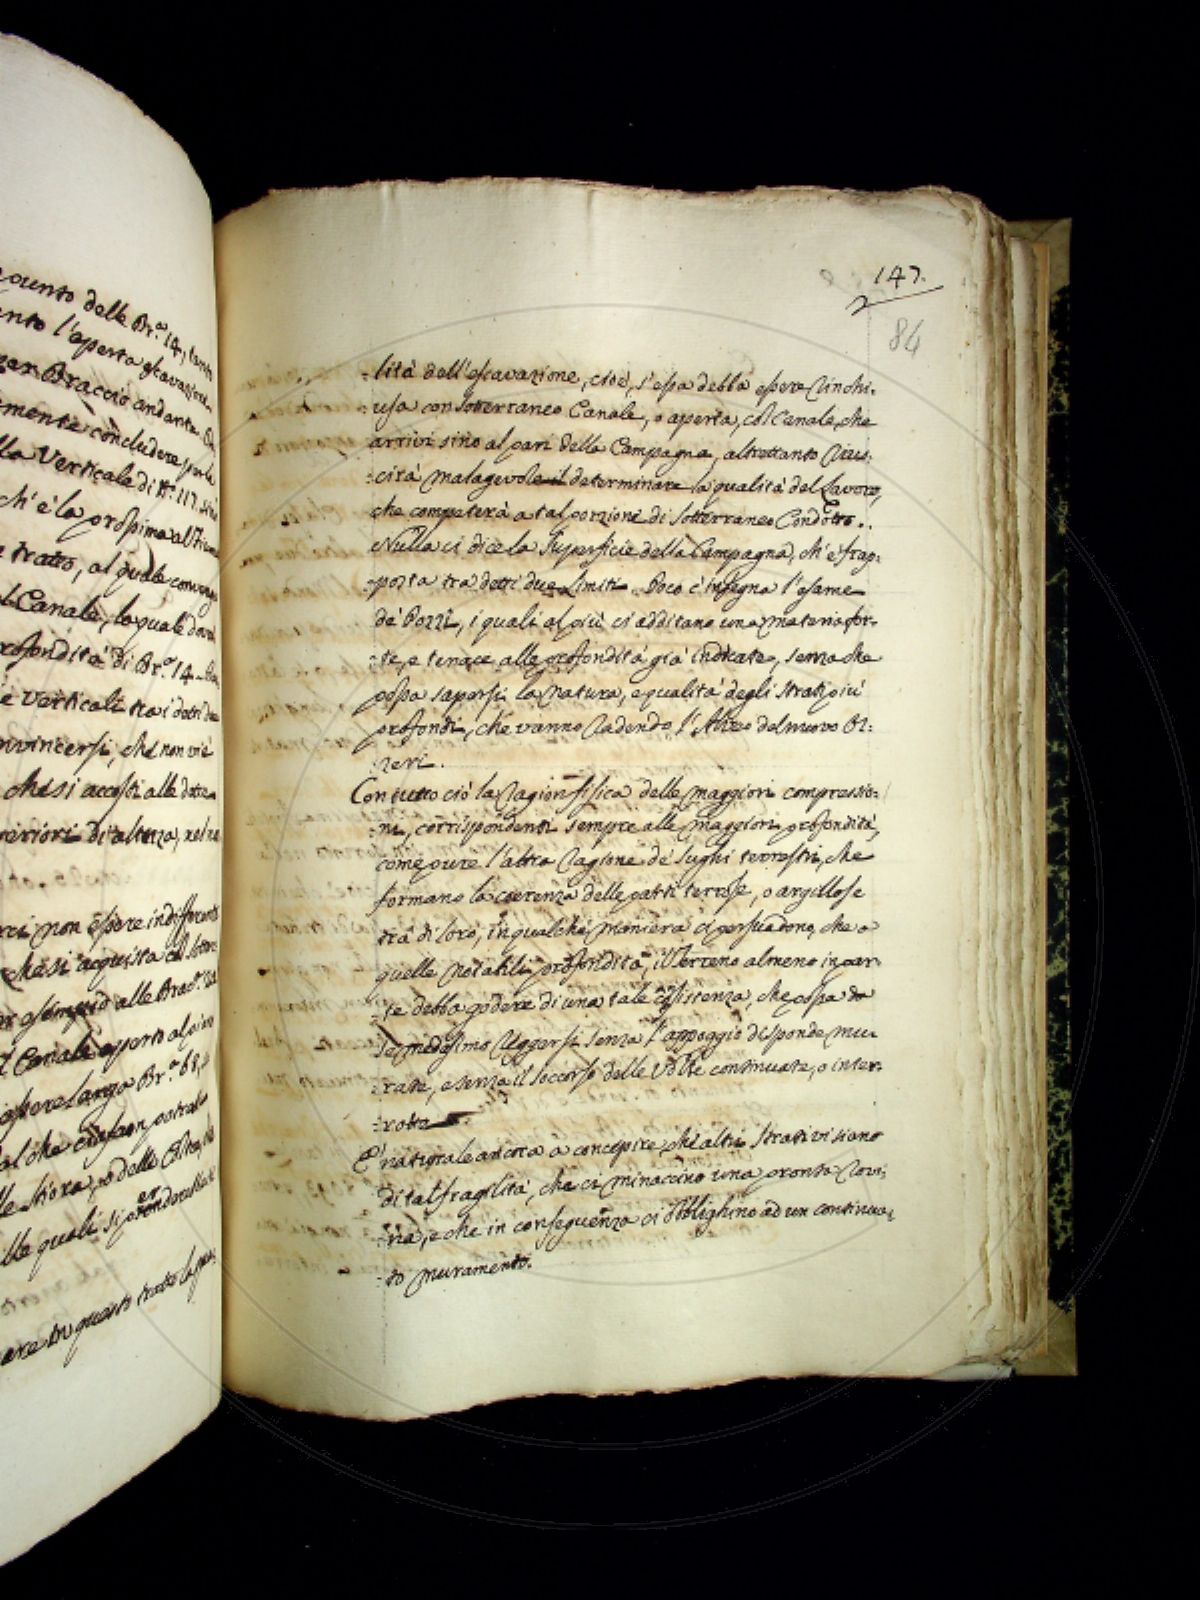 punto delle Br.a 14, tanto
ento l'aperta escavazione
per Braccio andante
mente concludere per la
la Verticale di N.o 117. sino
ch' è la prossima al
tratto, al quale convenga
Canale, la quale dovrà
profondità di Br.a 14
Verticali tra i detti due
nvincersi, che non vi è
che si accosti alle dette
eriori di altezza, nel
rci non essere indifferente
che si acquista col sotter
esempio alle Brac.a
Canale aperto al piano
essere largo Br.a 68,
al che ciascun potrebbe
lle stiora, o delle
lle quali si prenderebbe
are in questo tratto la
147.
84
:lità dell'escavazione, cioè, s'essa debba essere rinchi:
usa con sotterraneo Canale, o aperta, col Canale, che
arrivi sino al pari della Campagna, altrettanto rius:
:cirà malagevole il determinare la qualità del Lavoro,
che competerà a tal porzione di sotterraneo Condotto.
Nulla ci dice la superficie della Campagna, ch' è frap:
:posta tra detti due Limiti. Poco c'insegna l'esame
de' Pozzi, i quali al più ci additano una materia for:
:te, e tenace alle profondità già indicate, senza che
possa sapersi la natura, e qualità degli strati più
profondi, che vanno radendo l'Alveo del nuovo Oz:
:zeri.
Con tutto ciò la ragion fisica delle maggiori compressio:
:ni, corrispondenti sempre alle maggiori profondità,
come pure l'altra ragione de' sughi terrestri, che
formano la coerenza delle parti terrose, o argillose
trà di loro, in qualche maniera ci persuadono, che a
quelle notabili profondità, il Terreno almeno in par:
:te debba godere di una tale consistenza, che possa da
se medesimo reggersi senza l'appoggio di sponde mu:
:rate, e senza il soccorso delle Volte continuate, o inter:
:rotte.
E' naturale ancora a concepire, che altri strati vi siano
di tal fragilità, che ci minaccino una pronta rovi:
:na, e che in conseguenza ci obblighino ad un continua:
:to muramento.